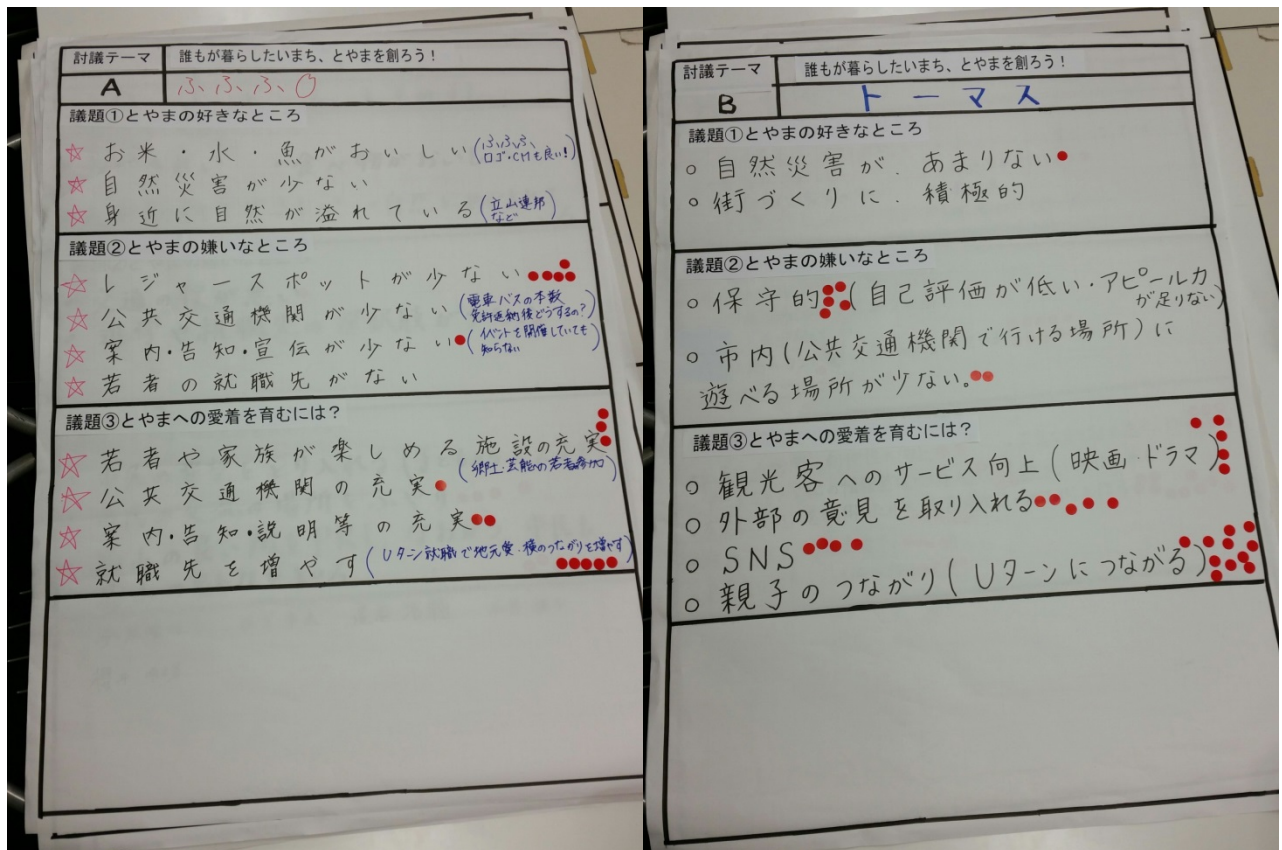 討議テーマ 誰もが暮らしたいまち、とやまを創ろう！
A ふ、ふ、ふ、
議題①とやまの好きなところ
お米・水・魚がおいしい(ふ,ふ,ふ、
ロゴ・CMも良い!)
自然災害が少ない
身近に自然が溢れている(立山連邦
など)
議題②とやまの嫌いなところ
レジャースポットが少ない
公共交通機関が少ない(電車バスの本数
免許返納後どうするの?)
案内・告知・宣伝が少ない(イベントを開催していても
知らない)
若者の就職先がない
議題③とやまへの愛着を育むには？
若者や家族が楽しめる施設の充実
(郷土芸能の若者参加)
公共交通機関の充実
案内・告知・説明等の充実
就職先を増やす(Uターン就職で地元愛・横のつながりを増やす)
討議テーマ 誰もが暮らしたいまち、とやまを創ろう！
B トーマス
議題①とやまの好きなところ
○ 自然災害が、あまりない
○ 街づくりに、積極的
議題②とやまの嫌いなところ
○ 保守的(自己評価が低い・アピール力
が足りない)
○ 市内(公共交通機関で行ける場所)に
遊べる場所が少ない。
議題③とやまへの愛着を育むには？
○ 観光客へのサービス向上(映画・ドラマ)
○ 外部の意見を取り入れる
○ SNS
○ 親子のつながり(Uターンにつながる)